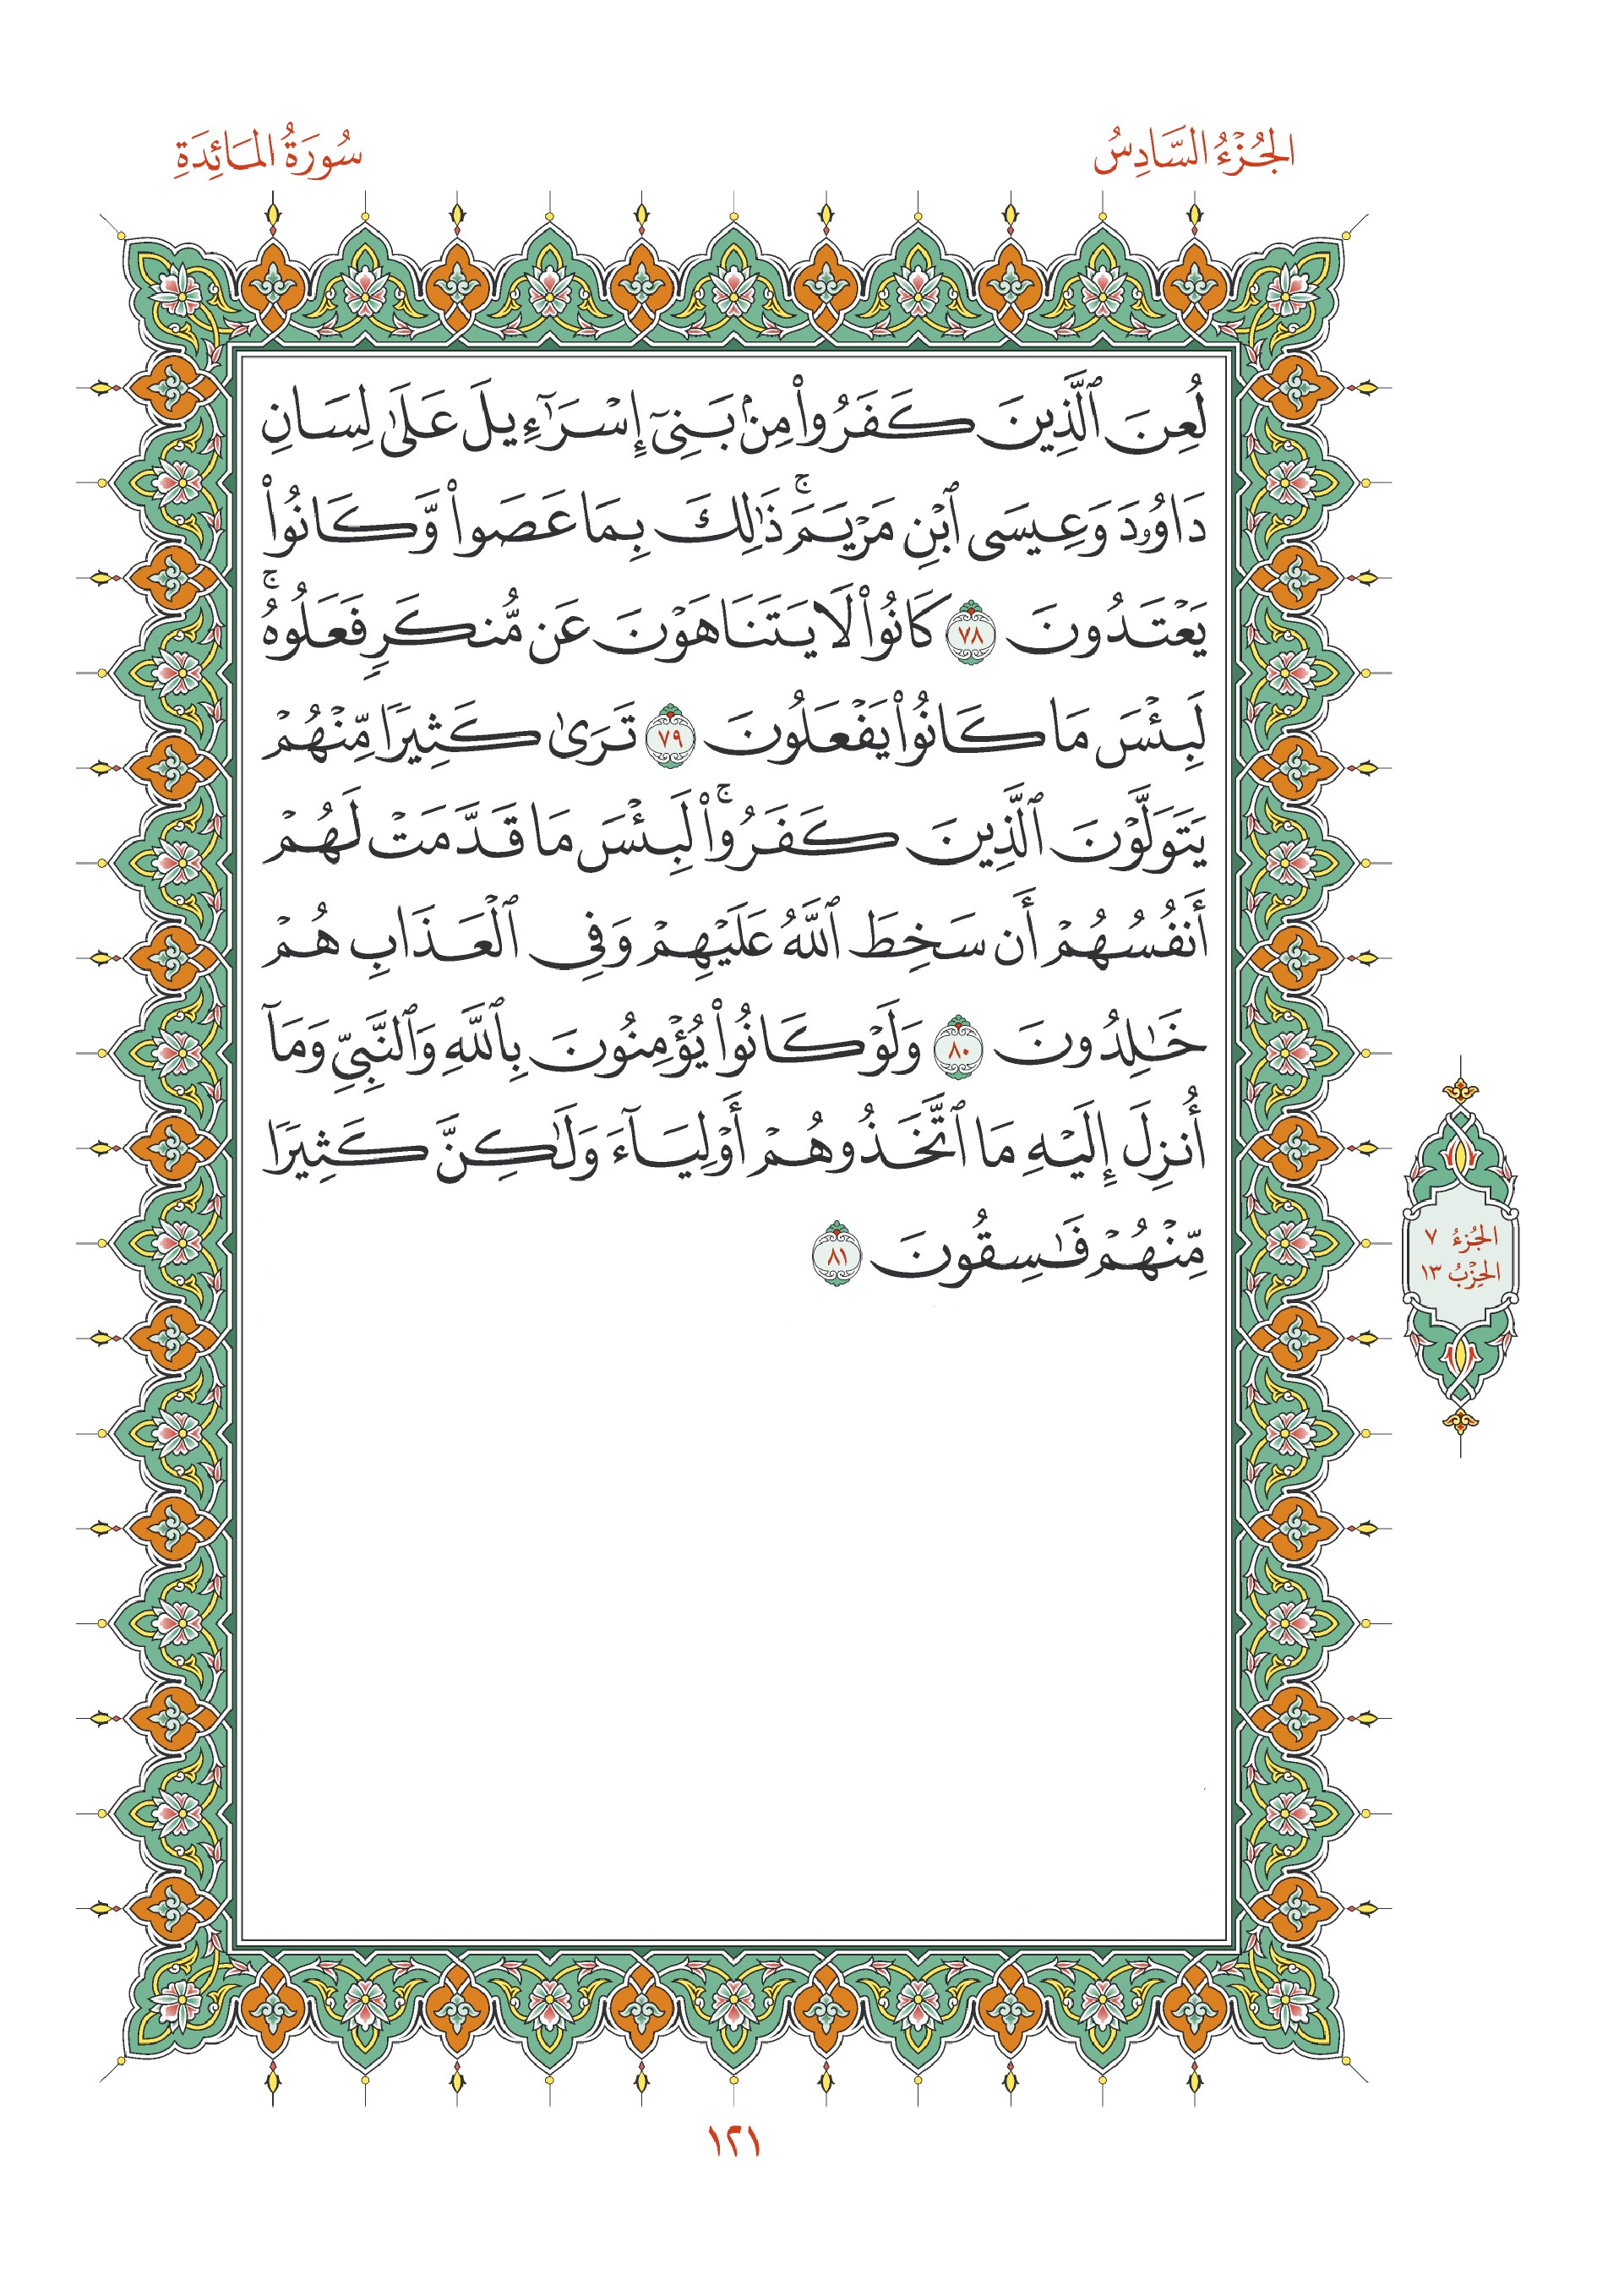 الجُزْءُ السَّادِسُ
سُورَةُ المَائِدَةِ
لُعِنَ ٱلَّذِينَ كَفَرُوا۟ مِنۢ بَنِىٓ إِسْرَٰٓءِيلَ عَلَىٰ لِسَانِ
دَاوُۥدَ وَعِيسَى ٱبْنِ مَرْيَمَ ۚ ذَٰلِكَ بِمَا عَصَوا۟ وَّكَانُوا۟
يَعْتَدُونَ ٧٨ كَانُوا۟ لَا يَتَنَاهَوْنَ عَن مُّنكَرٍ فَعَلُوهُ ۚ
لَبِئْسَ مَا كَانُوا۟ يَفْعَلُونَ ٧٩ تَرَىٰ كَثِيرًا مِّنْهُمْ
يَتَوَلَّوْنَ ٱلَّذِينَ كَفَرُوا۟ ۚ لَبِئْسَ مَا قَدَّمَتْ لَهُمْ
أَنفُسُهُمْ أَن سَخِطَ ٱللَّهُ عَلَيْهِمْ وَفِى ٱلْعَذَابِ هُمْ
خَٰلِدُونَ ٨٠ وَلَوْ كَانُوا۟ يُؤْمِنُونَ بِٱللَّهِ وَٱلنَّبِىِّ وَمَآ
أُنزِلَ إِلَيْهِ مَا ٱتَّخَذُوهُمْ أَوْلِيَآءَ وَلَٰكِنَّ كَثِيرًا
مِّنْهُمْ فَٰسِقُونَ ٨١
الجُزءُ ٧
الحِزْبُ ١٣
١٢١